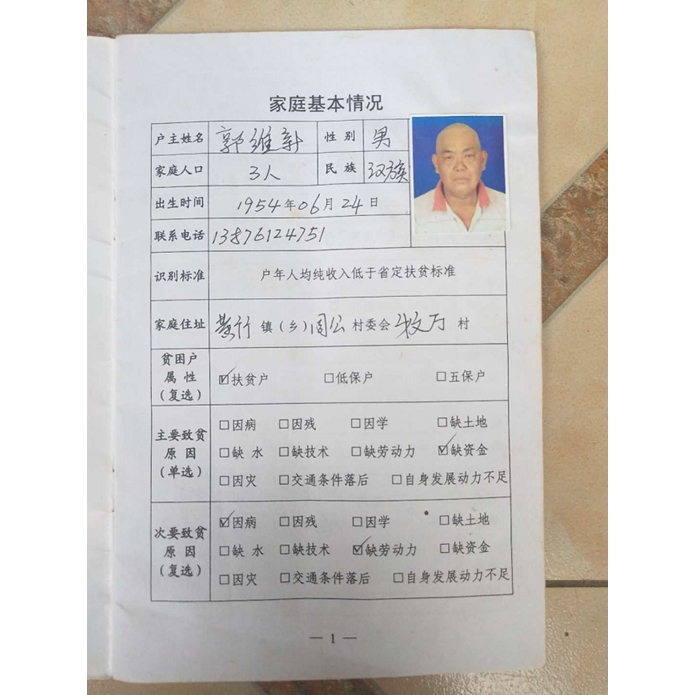 家庭基本情况
户主姓名 郭维新 性别 男
家庭人口 3人 民族 汉族
出生时间 1954年06月24日
联系电话 13876124751
识别标准 户年人均纯收入低于省定扶贫标准
家庭住址 黄竹 镇(乡) 周公 村委会 村
贫困户属性(复选) ☑扶贫户 □低保户 □五保户
主要致贫原因(单选) □因病 □因残 □因学 □缺土地
□缺水 □缺技术 □缺劳动力 ☑缺资金
□因灾 □交通条件落后 □自身发展动力不足
次要致贫原因(复选) ☑因病 □因残 □因学 □缺土地
□缺水 □缺技术 ☑缺劳动力 □缺资金
□因灾 □交通条件落后 □自身发展动力不足
— 1 —